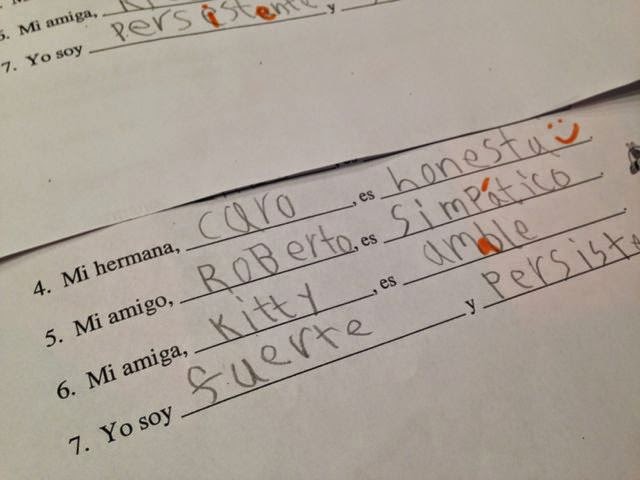 6. Mi amiga,
persistente y
7. Yo soy
4. Mi hermana, caro, es honesta
5. Mi amigo, RoBerto, es simpático.
6. Mi amiga, Kitty, es amble.
7. Yo soy fuerte y persist